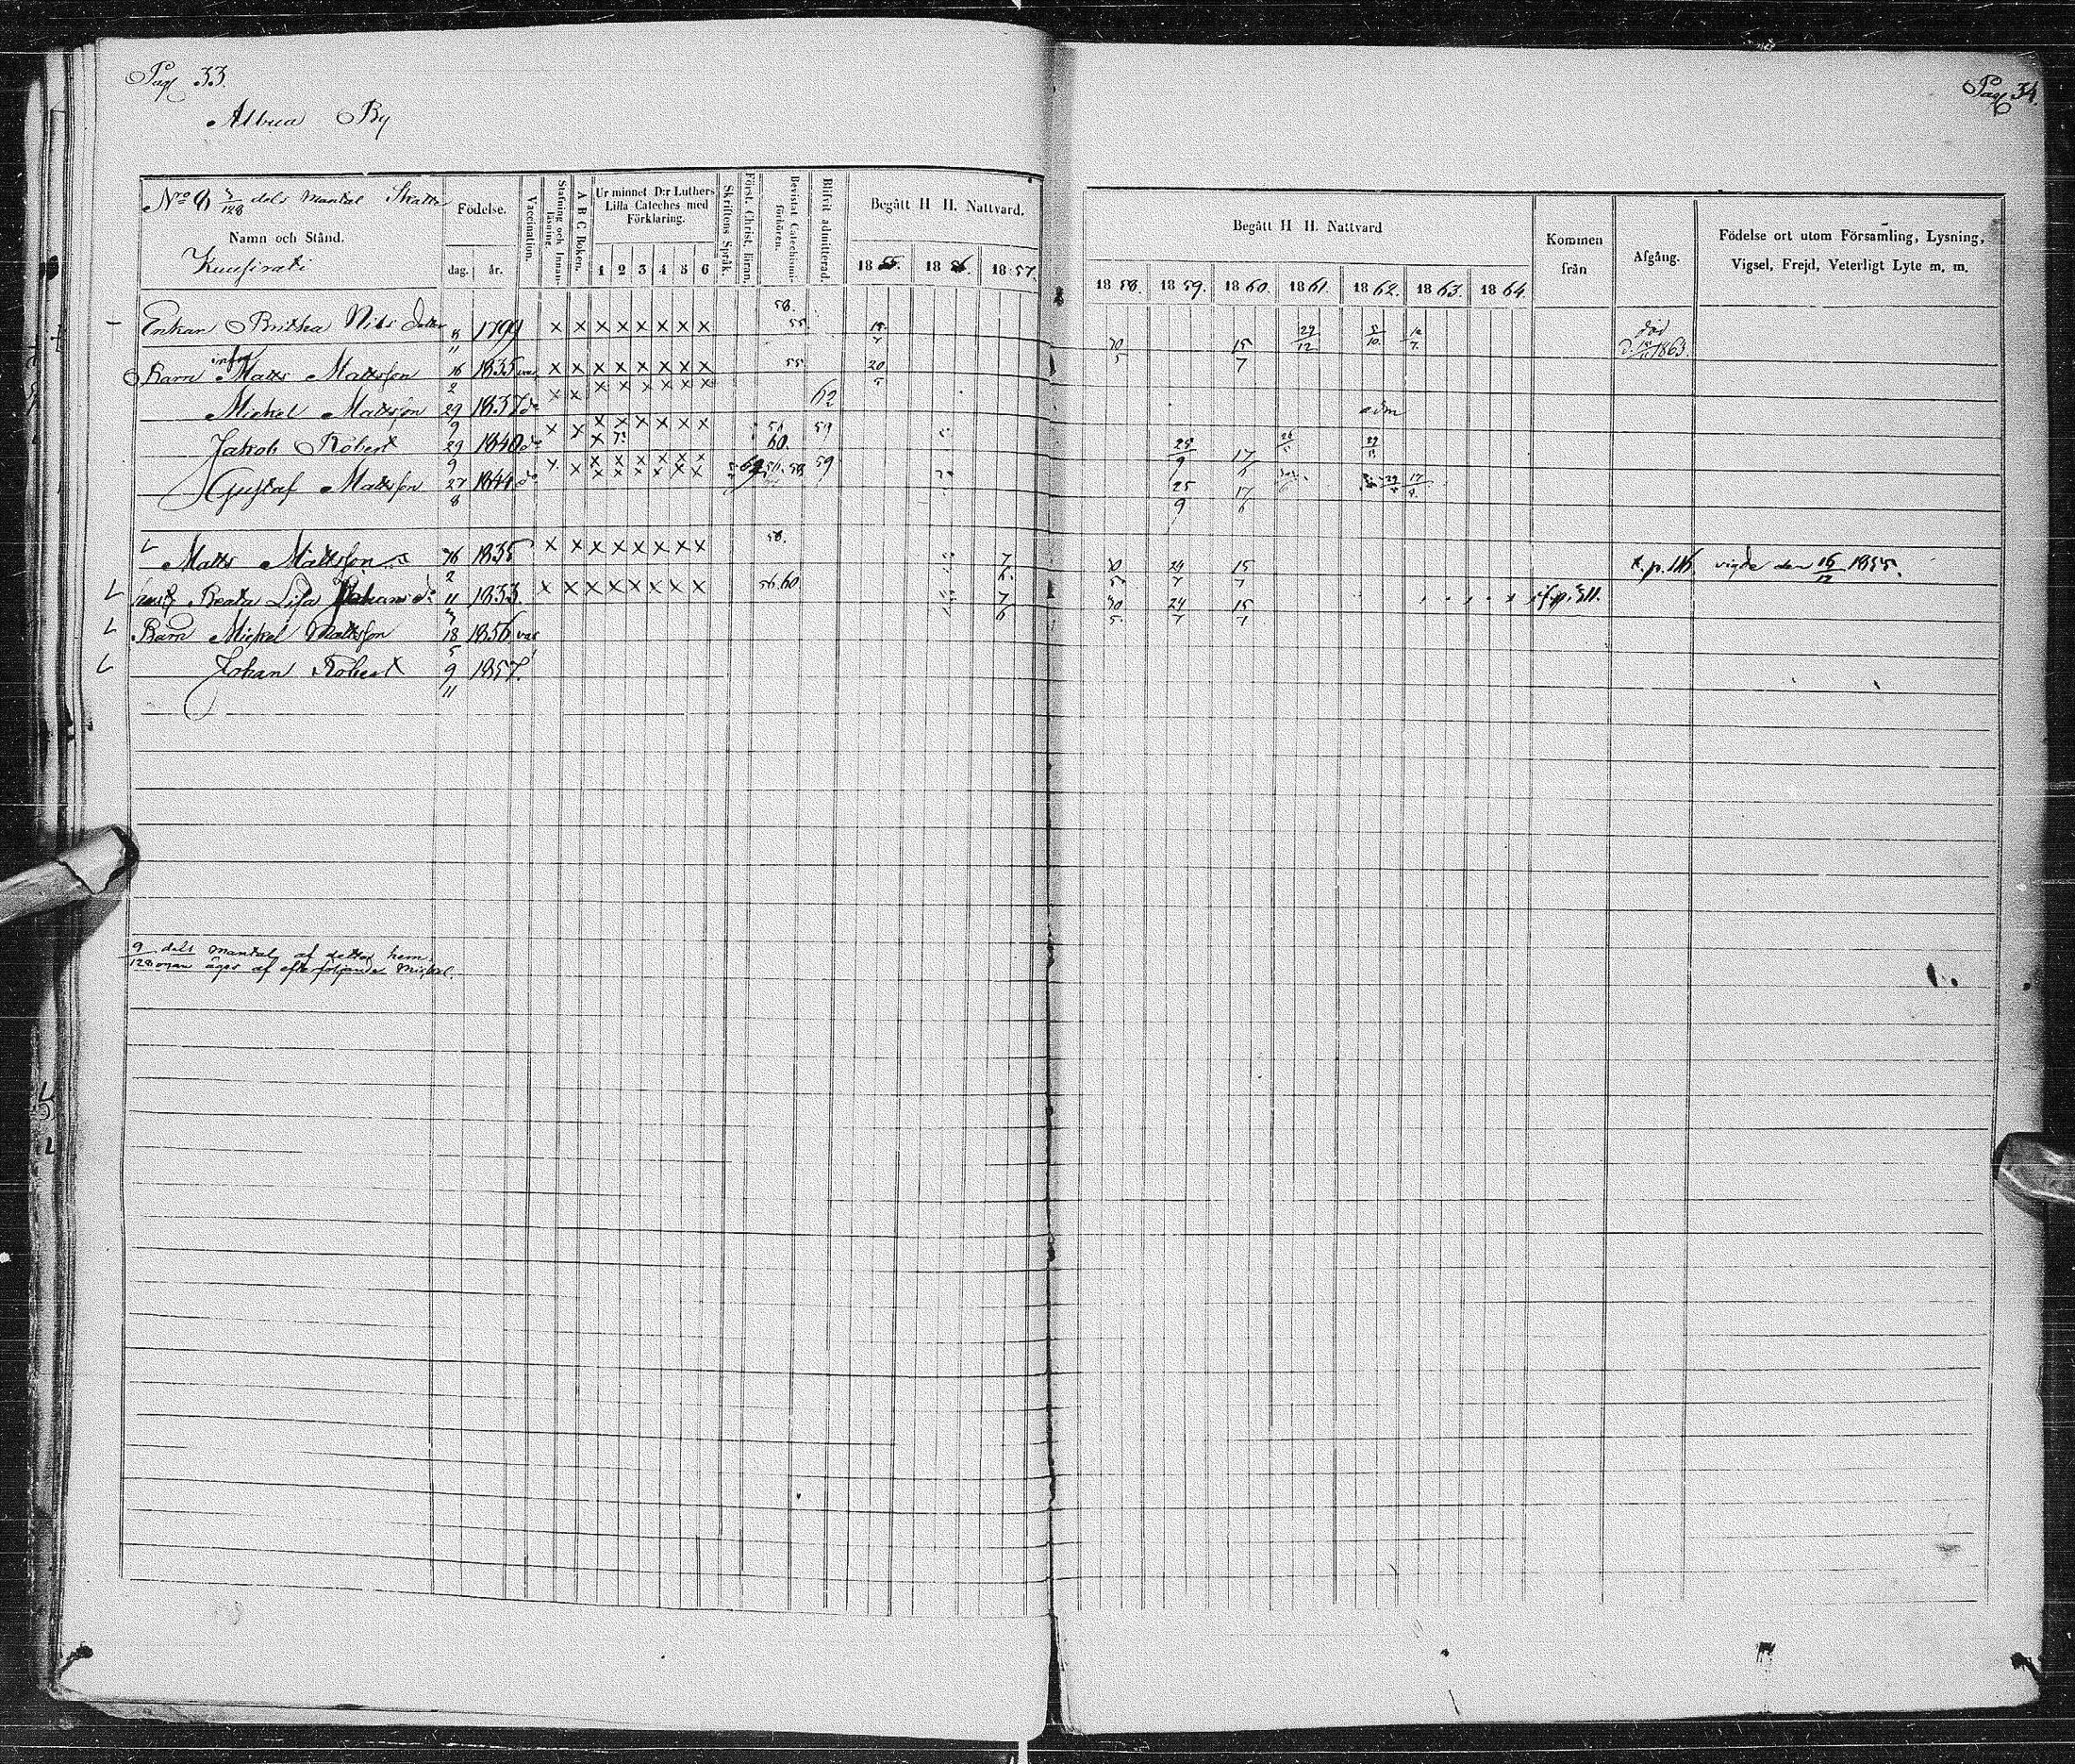 Pag 33.
Pag 34.
Albua By
Nro 8 3/128 dels mantal Skatte
Namn och Stånd.
Födelse.
dag. år.
Vaccination.
Stafning och Innan-läsning.
A B C Boken.
Ur minnet D:r Luthers Lilla Cateches med Förklaring.
1 2 3 4 5 6
Skriftens Språk.
Först. Christ. läran.
Bevistat Catechismi-förhören.
Blifvit admitterad.
Begått H H. Nattvard.
1855. 1856. 1857.
Begått H H. Nattvard
1858. 1859. 1860. 1861. 1862. 1863. 1864.
Kommen från
Afgång.
Födelse ort utom Församling, Lysning, Vigsel, Frejd, Veterligt Lyte m. m.
Enkan Britha Nils dotter 8/11 1799 × × × × × × × × 58. 55 20/5 15/7 29/12 5/10 12/7 död 1863.
Barn Matts Mattsson 16/2 1835 vac × × × × × × × × 55 20/5
Mickel Mattsson 29/9 1837 do × × × × × × × × 62 adm
Jakob Robert 29/9 1840 do × × × × × × × × 60. 59 25/9 17/6
Gustaf Mattsson 27/8 1844 do × × × × × × × 59 25/9 17/6
Matts Mattsson 16/2 1835 × × × × × × × × 58. 7/6 30/5 24/7 15/7 t.p. 116 vigde den 16/12 1855.
Beata Lisa Johans d: 11/3 1833 × × × × × × × × 56.60 7/6 30/5 24/7 15/7
Barn Mickel Mattsson 18/5 1856 vac
Johan Robert 9/11 1857.
9/128 dels mantal af dettas hem-
man äges af efterföljande Mickel.